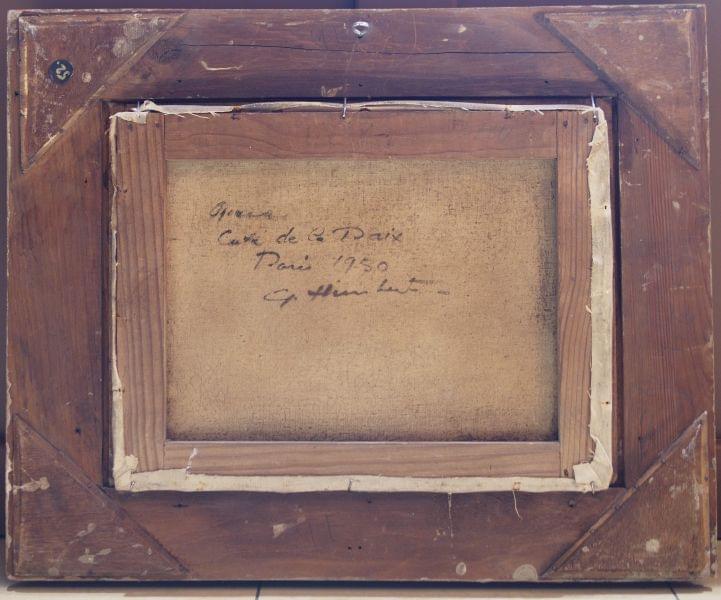 Opera
Café de la Paix
Paris 1950
G. Himbert
25